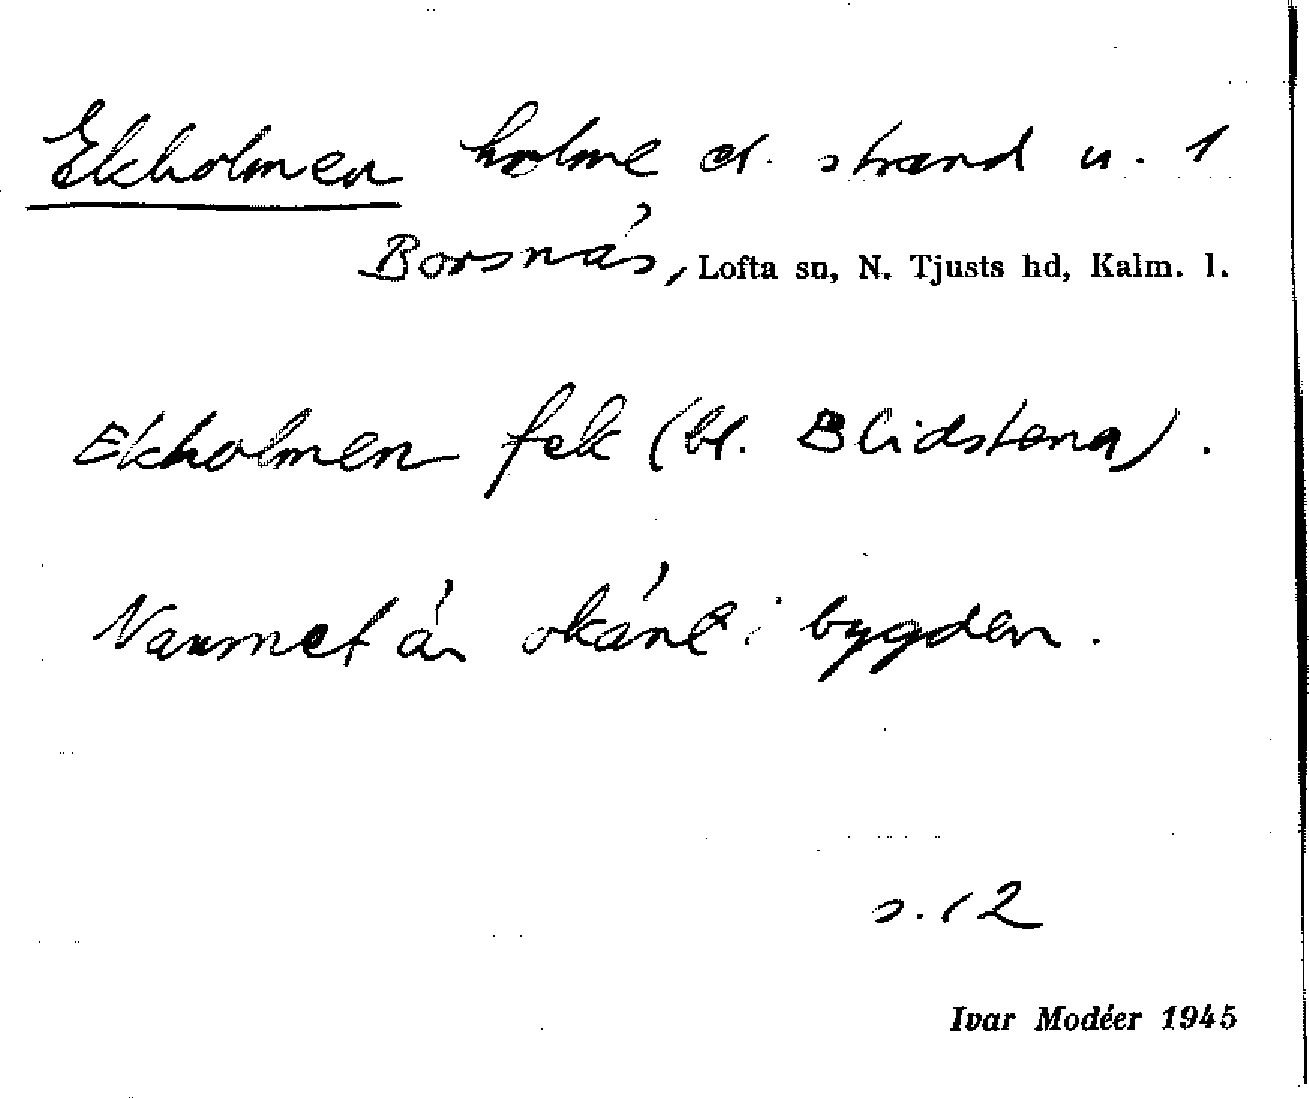 Ekholmen holme o. strand u. 1
Borsnäs, Lofta sn, N. Tjusts hd, Kalm. l.
Ekholmen fek (bl. Blidstena).
Namnet är okänt i bygden.
s. 12
Ivar Modéer 1945